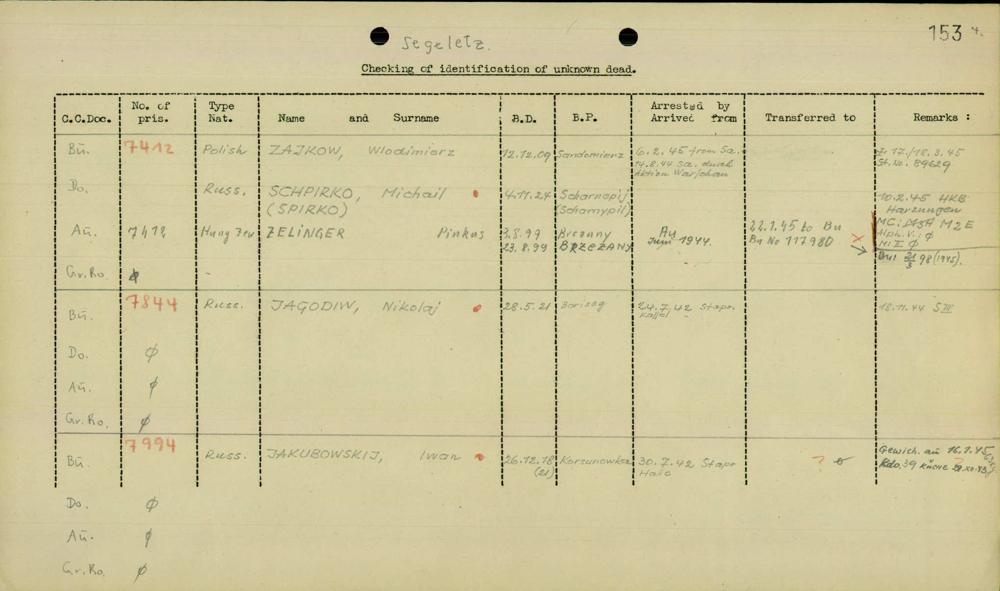 Segeletz.
153
Checking of identification of unknown dead.
C.C.Doc. No. of pris. Type Nat. Name and Surname B.D. B.P. Arrested by Arrived from Transferred to Remarks :
Bu. 7412 Polish ZAJKOW, Wlodimierz 12.12.09 Sandomierz 6.2.45 from Sa. 17./18.3.45
14.8.44 Sa. durch St. No. 89629
Aktion Warschau
Do. Russ. SCHPIRKO, Michail 4.11.24 Scharnopij 10.2.45 HKB
(SPIRKO) (Scharnypil) Harzungen
Au. 7412 Hung ZELINGER Pinkas 3.8.99 Brezany Au 22.1.45 to Bu X MC: M2E
23.8.99 BRZEZANY Juni 1944. Bu No 117980 Hph. V.: ø
M: II ø
98 (1945).
Gr.Ro. ø -
7844
Bu. Russ. JAGODIW, Nikolaj 28.5.21 24.7.42 Stapo. 18.11.44 SIII
Kassel
Do. ø
Au. ø
Gr.Ro. ø
7994
Bu. Russ. JAKUBOWSKIJ, Iwan 26.12.18 Korsunowka 30.7.42 Stapo ? Gewich. am 16.1.45
(21) Halle Kdo. 39 Küche
Do. ø
Au. ø
Gr.Ro. ø